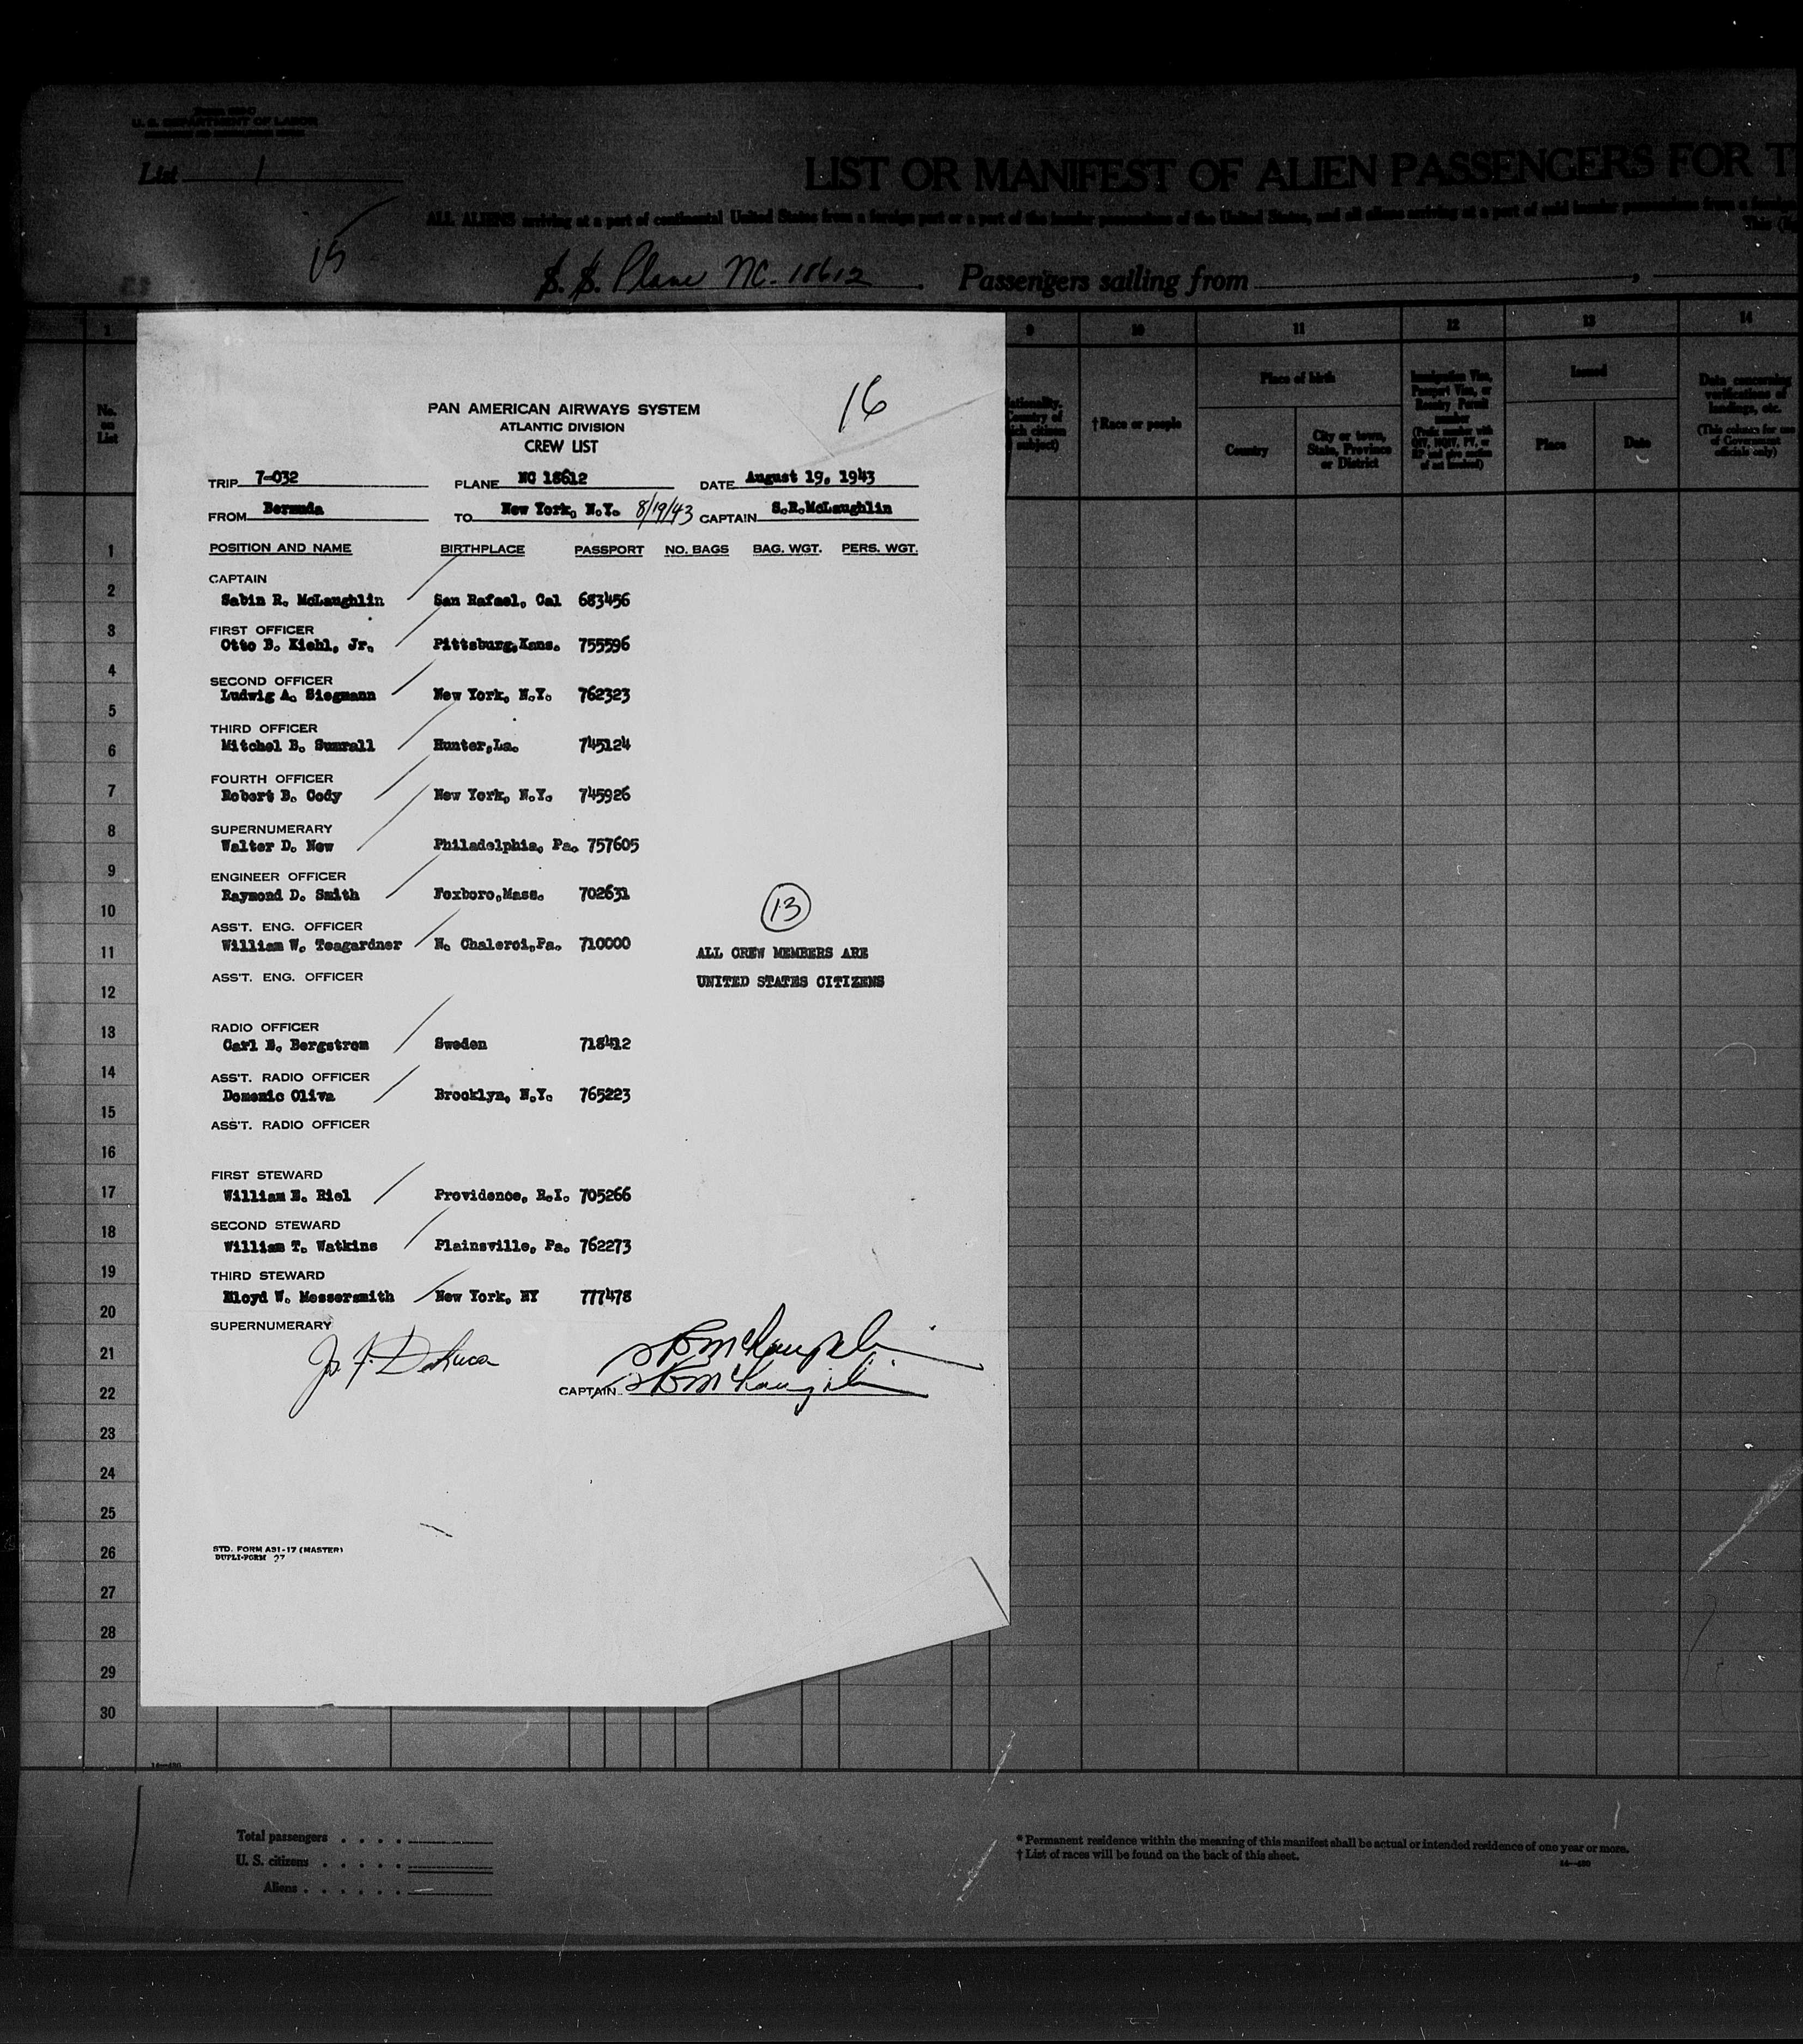 U. S. DEPARTMENT OF LABOR
List 1
LIST OR MANIFEST OF ALIEN PASSENGERS FOR T
ALL ALIENS arriving at a port of continental United States from a foreign port or a port of the insular possessions of the United States, and all aliens arriving at a port of said insular possessions from a foreign
15
S. S. Plane NC. 18612 Passengers sailing from
1 9 10 11 12 13 14
No. on List
†Race or people
Place of birth
Country
City or town, State, Province or District
Immigration Visa, Passport Visa, or Reentry Permit number
Issued
Place
Date
Data concerning verifications of landings, etc.
(This column for use of Government officials only)
16
PAN AMERICAN AIRWAYS SYSTEM
ATLANTIC DIVISION
CREW LIST
TRIP 7-032 PLANE NC 18612 DATE August 19, 1943
FROM Bermuda TO New York, N.Y. 8/19/43 CAPTAIN S.R.McLaughlin
POSITION AND NAME BIRTHPLACE PASSPORT NO. BAGS BAG. WGT. PERS. WGT.
CAPTAIN
Sabin R. McLaughlin San Rafael, Cal 683456
FIRST OFFICER
Otto B. Kiehl, Jr. Pittsburg,Kans. 755596
SECOND OFFICER
Ludwig A. Siegmann New York, N.Y. 762323
THIRD OFFICER
Mitchel B. Sumrall Hunter,La. 745124
FOURTH OFFICER
Robert B. Cody New York, N.Y. 745926
SUPERNUMERARY
Walter D. New Philadelphia, Pa. 757605
ENGINEER OFFICER
Raymond D. Smith Foxboro,Mass. 702631
ASS'T. ENG. OFFICER
William W. Teagardner N. Chaleroi,Pa. 710000
ASS'T. ENG. OFFICER
13
ALL CREW MEMBERS ARE
UNITED STATES CITIZENS
RADIO OFFICER
Carl E. Bergstrom Sweden 718412
ASS'T. RADIO OFFICER
Domenic Oliva Brooklyn, N.Y. 765223
ASS'T. RADIO OFFICER
FIRST STEWARD
William E. Riel Providence, R.I. 705266
SECOND STEWARD
William T. Watkins Plainsville, Pa. 762273
THIRD STEWARD
Lloyd W. Messersmith New York, NY 777478
SUPERNUMERARY
CAPTAIN SRMcLaughlin
STD. FORM A31-17 (MASTER)
DUPLI-FORM 27
1
2
3
4
5
6
7
8
9
10
11
12
13
14
15
16
17
18
19
20
21
22
23
24
25
26
27
28
29
30
Total passengers
U. S. citizens
Aliens
* Permanent residence within the meaning of this manifest shall be actual or intended residence of one year or more.
† List of races will be found on the back of this sheet.